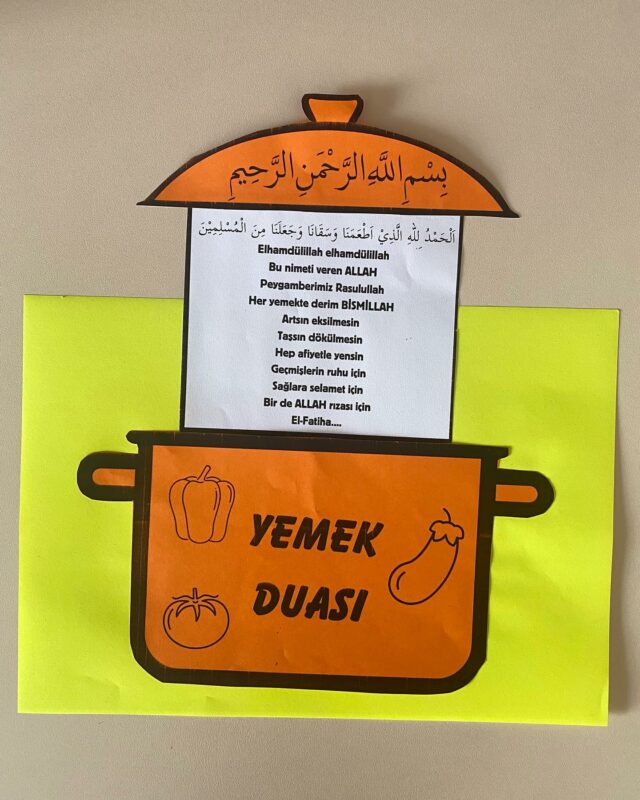 بِسْمِ اللَّهِ الرَّحْمَنِ الرَّحِيمِ
اَلْحَمْدُ لِلّٰهِ الَّذِيْ اَطْعَمَنَا وَسَقَانَا وَجَعَلَنَا مِنَ الْمُسْلِمِيْنَ
Elhamdülillah elhamdülillah
Bu nimeti veren ALLAH
Peygamberimiz Rasulullah
Her yemekte derim BİSMİLLAH
Artsın eksilmesin
Taşsın dökülmesin
Hep afiyetle yensin
Geçmişlerin ruhu için
Sağlara selamet için
Bir de ALLAH rızası için
El-Fatiha....
YEMEK
DUASI